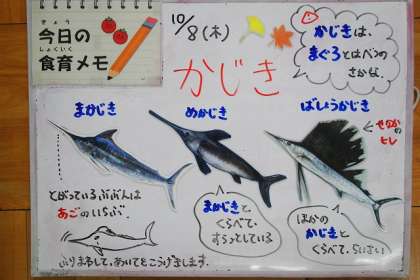 きょう
今日の
しょくいく
食育メモ
10/8(木)
かじき
かじきは、
まぐろとはべつの
さかな。
まかじき
めかじき
ばしょうかじき
せなかの
ヒレ
とがっているぶぶんは
あごのいちぶ。
ふりまわして、あいてをこうげきします。
まかじきと
くらべて、
すらっとしている
ほかの
かじきと
くらべて、ちいさい